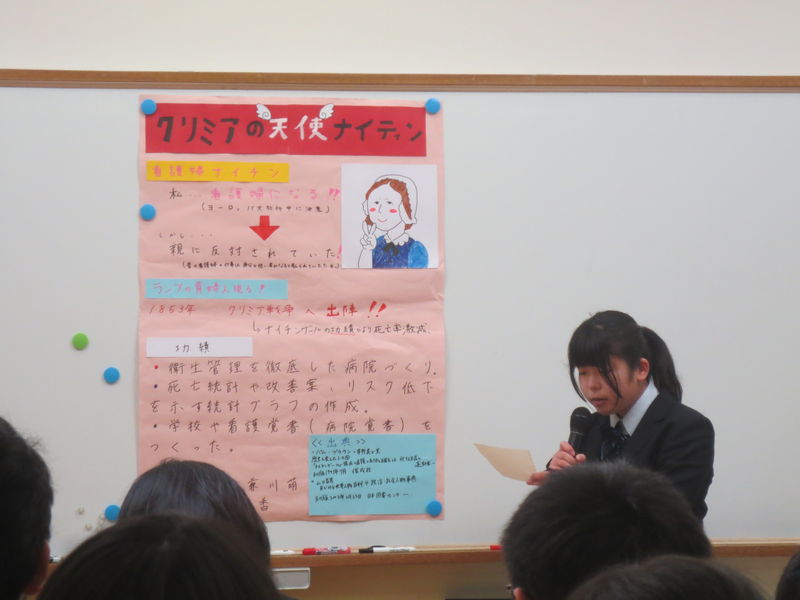 クリミアの天使ナイティン
看護婦ナイチン
私… 看護婦になる!!
しかし・・・
親に反対されていた!
ランプの貴婦人現る!
1853年 クリミア戦争へ出陣!!
↳ナイチンゲールの功績により死亡率激減、
功績
・衛生管理を徹底した病院づくり。
・死亡統計や改善案、リスク低下
を示す統計グラフの作成。
・学校や看護覚書(病院覚書)を
つくった。
<<出典>>
川萌
香